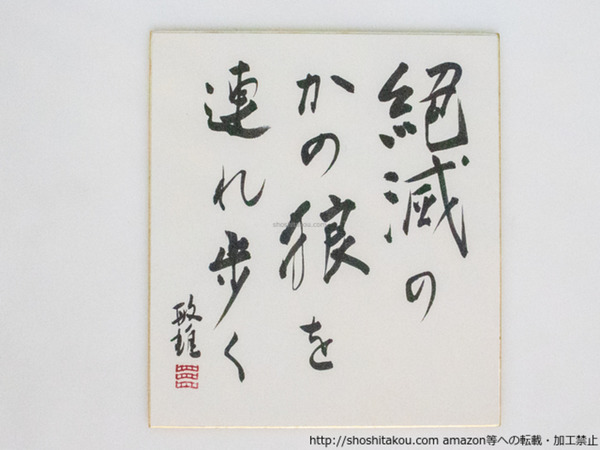 絕滅の
かの狼を
連れ歩く
敏雄
shoshitakou.com
http://shoshitakou.com amazon等への転載・加工禁止